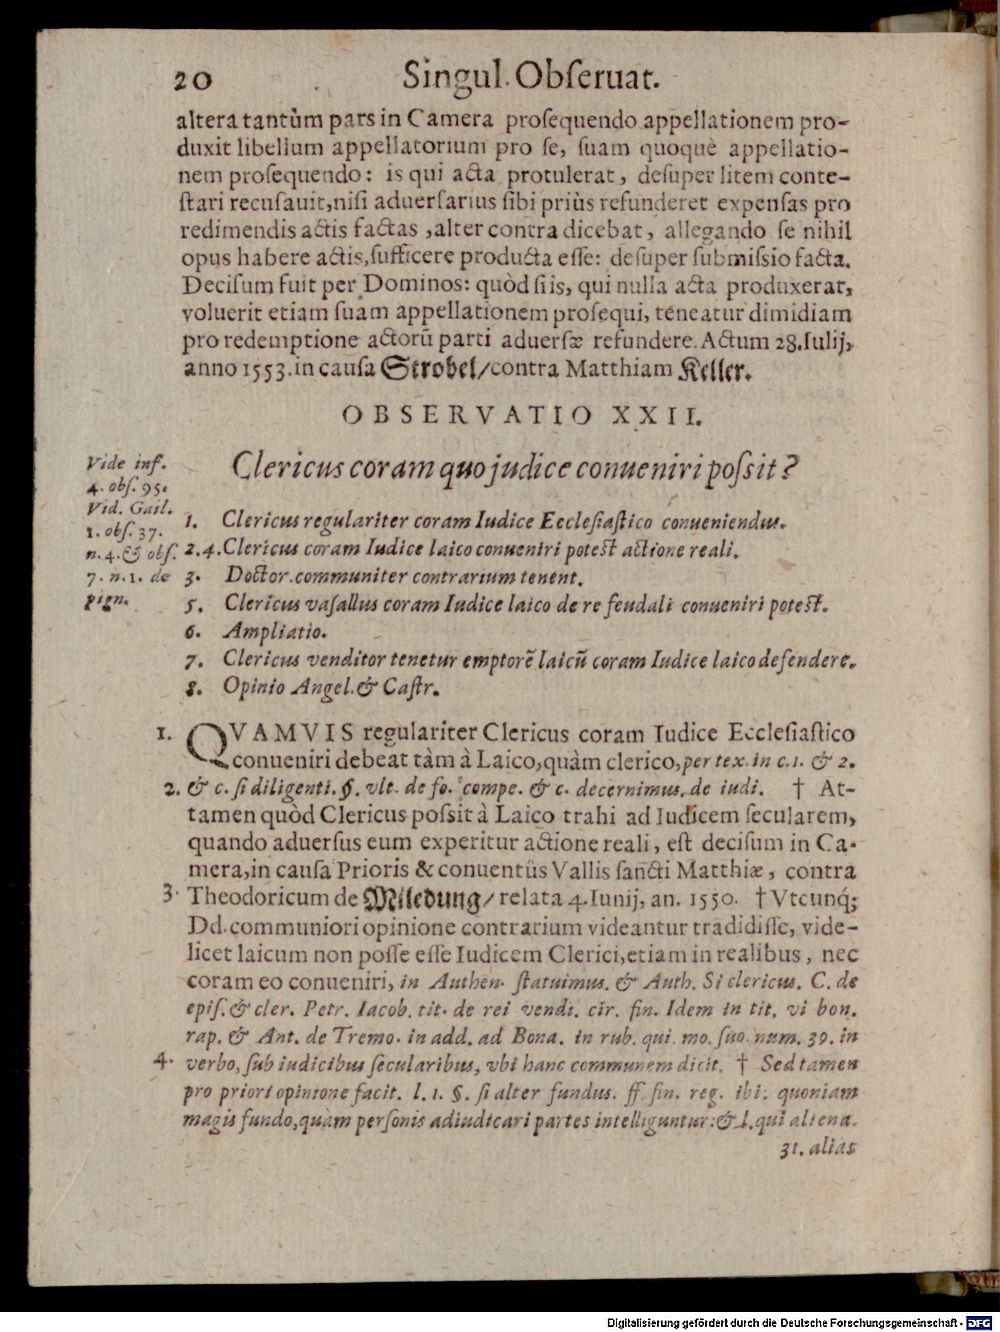 20 Singul. Obſeruat.
altera tantùm pars in Camera proſequendo appellationem pro-
duxit libellum appellatorium pro ſe, ſuam quoquè appellatio-
nem proſequendo: is qui acta protulerat, deſuper litem conte-
ſtari recuſauit, niſi aduerſarius ſibi priùs refunderet expenſas pro
redimendis actis factas, alter contra dicebat, allegando ſe nihil
opus habere actis, ſufficere producta eſſe: deſuper ſubmiſsio facta.
Deciſum fuit per Dominos: quòd ſi is, qui nulla acta produxerat,
voluerit etiam ſuam appellationem proſequi, teneatur dimidiam
pro redemptione actorũ parti aduerſæ refundere. Actum 28. Iulij,
anno 1553. in cauſa Strobel/contra Matthiam Keller.
OBSERVATIO XXII.
Clericus coram quo judice conueniri poſsit?
Vide inf.
4. obſ. 95.
Vid. Gail.
1. obſ. 37.
n. 4. & obſ.
7. n. 1. de
pign.
1. Clericus regulariter coram Iudice Eccleſiaſtico conueniendus.
2.4. Clericus coram Iudice laico conueniri poteſt actione reali.
3. Doctor. communiter contrarium tenent.
5. Clericus vaſallus coram Iudice laico de re feudali conueniri poteſt.
6. Ampliatio.
7. Clericus venditor tenetur emptorẽ laicũ coram Iudice laico defendere.
8. Opinio Angel. & Caſtr.
1. QVAMVIS regulariter Clericus coram Iudice Eccleſiaſtico
conueniri debeat tàm à Laico, quàm clerico, per tex. in c. 1. & 2.
2. & c. ſi diligenti. §. vlt. de fo. compe. & c. decernimus. de iudi. † At-
tamen quòd Clericus poſsit à Laico trahi ad Iudicem ſecularem,
quando aduerſus eum experitur actione reali, eſt deciſum in Ca-
mera, in cauſa Prioris & conuentûs Vallis ſancti Matthiæ, contra
3. Theodoricum de Miledung/ relata 4. Iunij, an. 1550. † Vtcunq́;
Dd. communiori opinione contrarium videantur tradidiſſe, vide-
licet laicum non poſſe eſſe Iudicem Clerici, etiam in realibus, nec
coram eo conueniri, in Authen. ſtatuimus. & Auth. Si clericus. C. de
epiſ. & cler. Petr. Iacob. tit. de rei vendi. cir. fin. Idem in tit. vi bon.
rap. & Ant. de Tremo. in add. ad Bona. in rub. qui. mo. ſuo. num. 39. in
4. verbo, ſub iudicibus ſecularibus, vbi hanc communem dicit. † Sed tamen
pro priori opinione facit. l. 1. §. ſi alter fundus. ff. fin. reg. ibi: quoniam
magis fundo, quàm perſonis adiudicari partes intelliguntur: & l. qui aliena.
31. alias
Digitalisierung gefördert durch die Deutsche Forschungsgemeinschaft - DFG